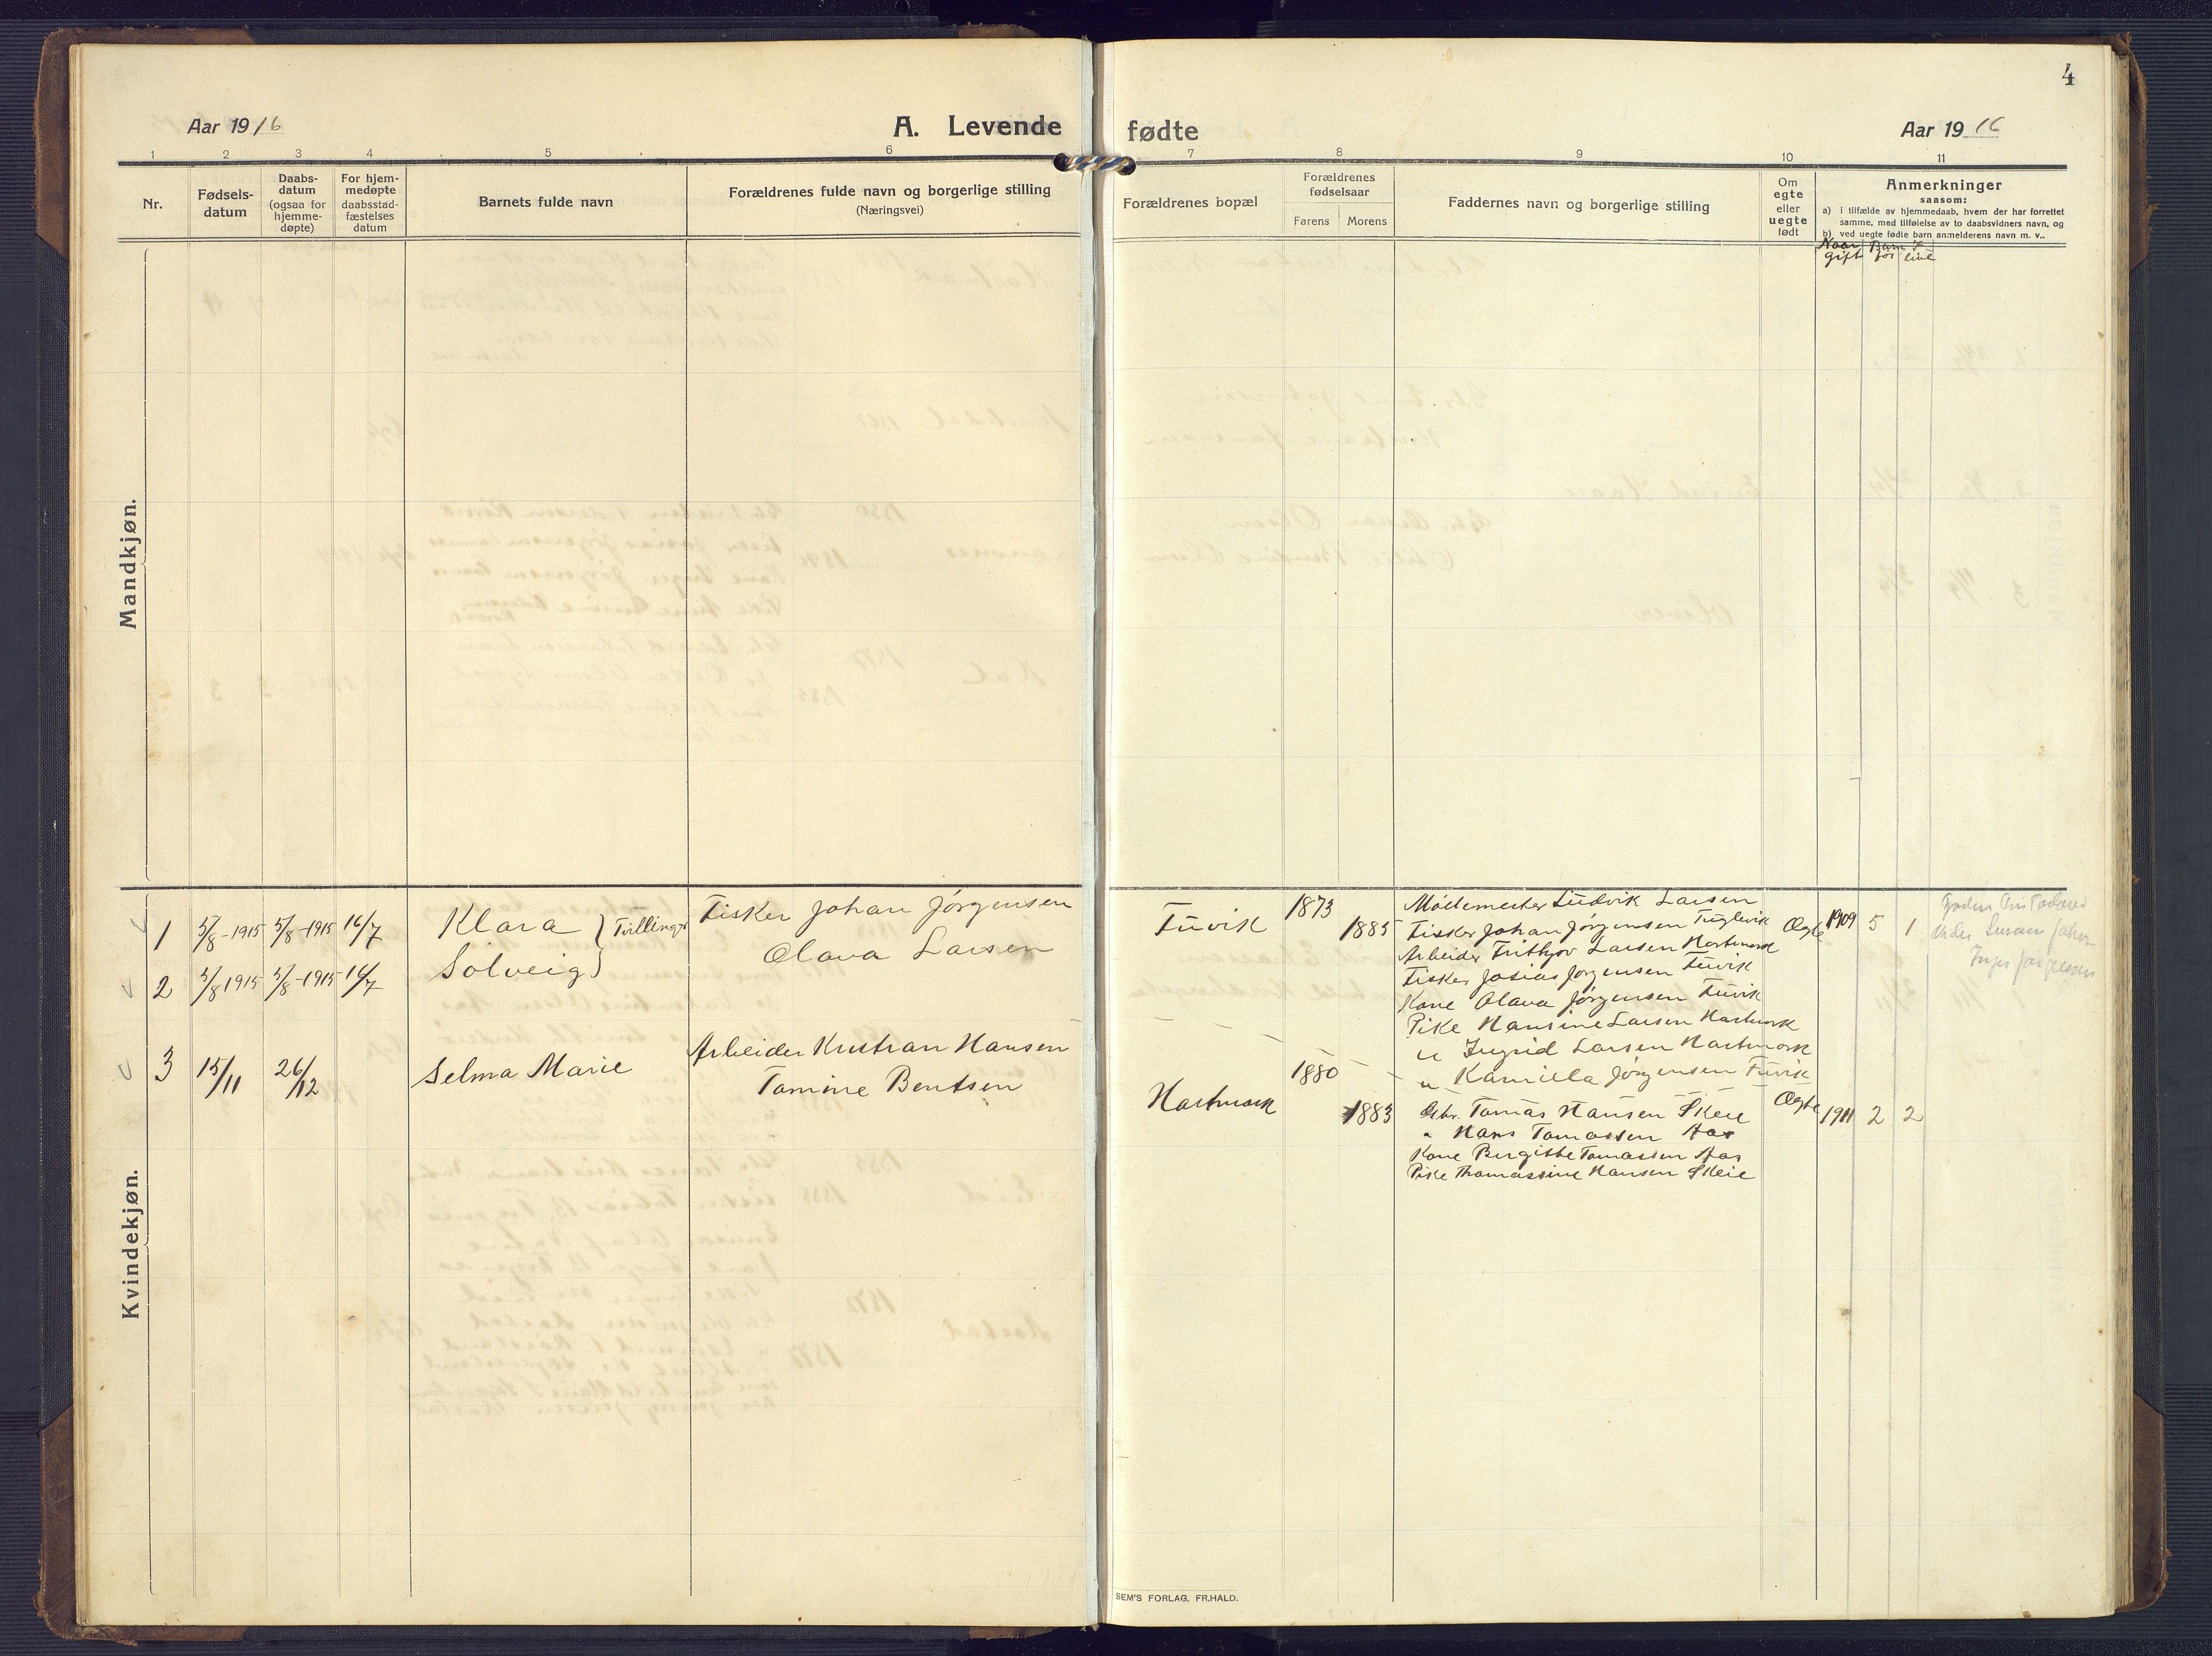 4
Aar 1916
A. Levende
fødte
Aar 1916
1 2 3 4 5 6 7 8 9 10 11
Nr.
Fødsels-
datum
Daabs-
datum
(ogsaa for
hjemme-
døpte)
For hjem-
medøpte
daabsstad-
fæstelses
datum
Barnets fulde navn
Forældrenes fulde navn og borgerlige stilling
(Næringsvei)
Forældrenes bopæl
Forældrenes
fødselsaar
Farens Morens
Faddernes navn og borgerlige stilling
Om
egte
eller
uegte
født
Anmerkninger
saasom:
a) i tilfælde av hjemmedaab, hvem der har forrettet
samme, med tilføielse av to daabsvidners navn, og
b) ved uegte fødte barn anmelderens navn m. v..
Naar
gift
Barn
før
live
Mandkjøn.
Kvindekjøn.
1 5/8-1915 5/8-1915 16/7 Klara } Tvillinger
Fisker Johan Jørgensen
2 5/8 1915 5/8-1915 16/7 Solveig }
Olava Larsen
3 15/11 26/12 Selma Marie
Arbeider Kristian Hansen
Tomine Bentsen
Tuvik 1873 1885
Ludvik Larsen
Fisker Johan Jørgensen
Arbeider Frithjov Larsen Hartmark
Fisker Josias Jørgensen Tuvik
Kone Olava Jørgensen Tuvik
Pike Hansine Larsen Hartmark
" Ingrid Larsen Hartmark
" Kamilla Jørgensen Tuvik
Ægte 1909 5 1
Hartmark 1880 1883
Gbr. Tomas Hansen Skeie
" Hans Tomassen Aas
Kone Birgitte Tomassen Aas
Pike Thomassine Hansen Skeie
Ægte 1911 2 2
Inger Jørgensen
SEM'S FORLAG, FR.HALD.